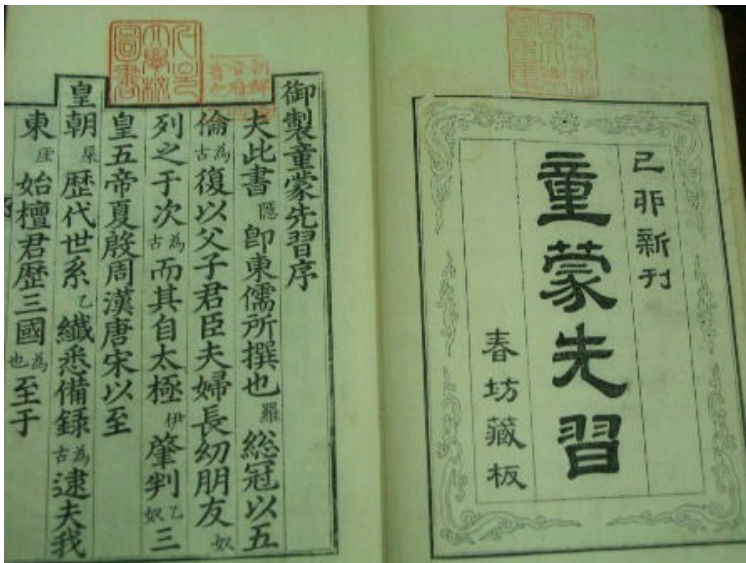 己卯新刊
童蒙先習
春坊藏板
御製童蒙先習序
夫此書隱卽東儒所撰也羅総冠以五
倫為古復以父子君臣夫婦長幼朋友奴
列之于次為古而其自太極伊肇判乙奴三
皇五帝夏殷周漢唐宋以至
皇朝厓歷代世系乙纖悉備録為古逮夫我
東厓始檀君歷三國為也至于
서울
大學校
圖書